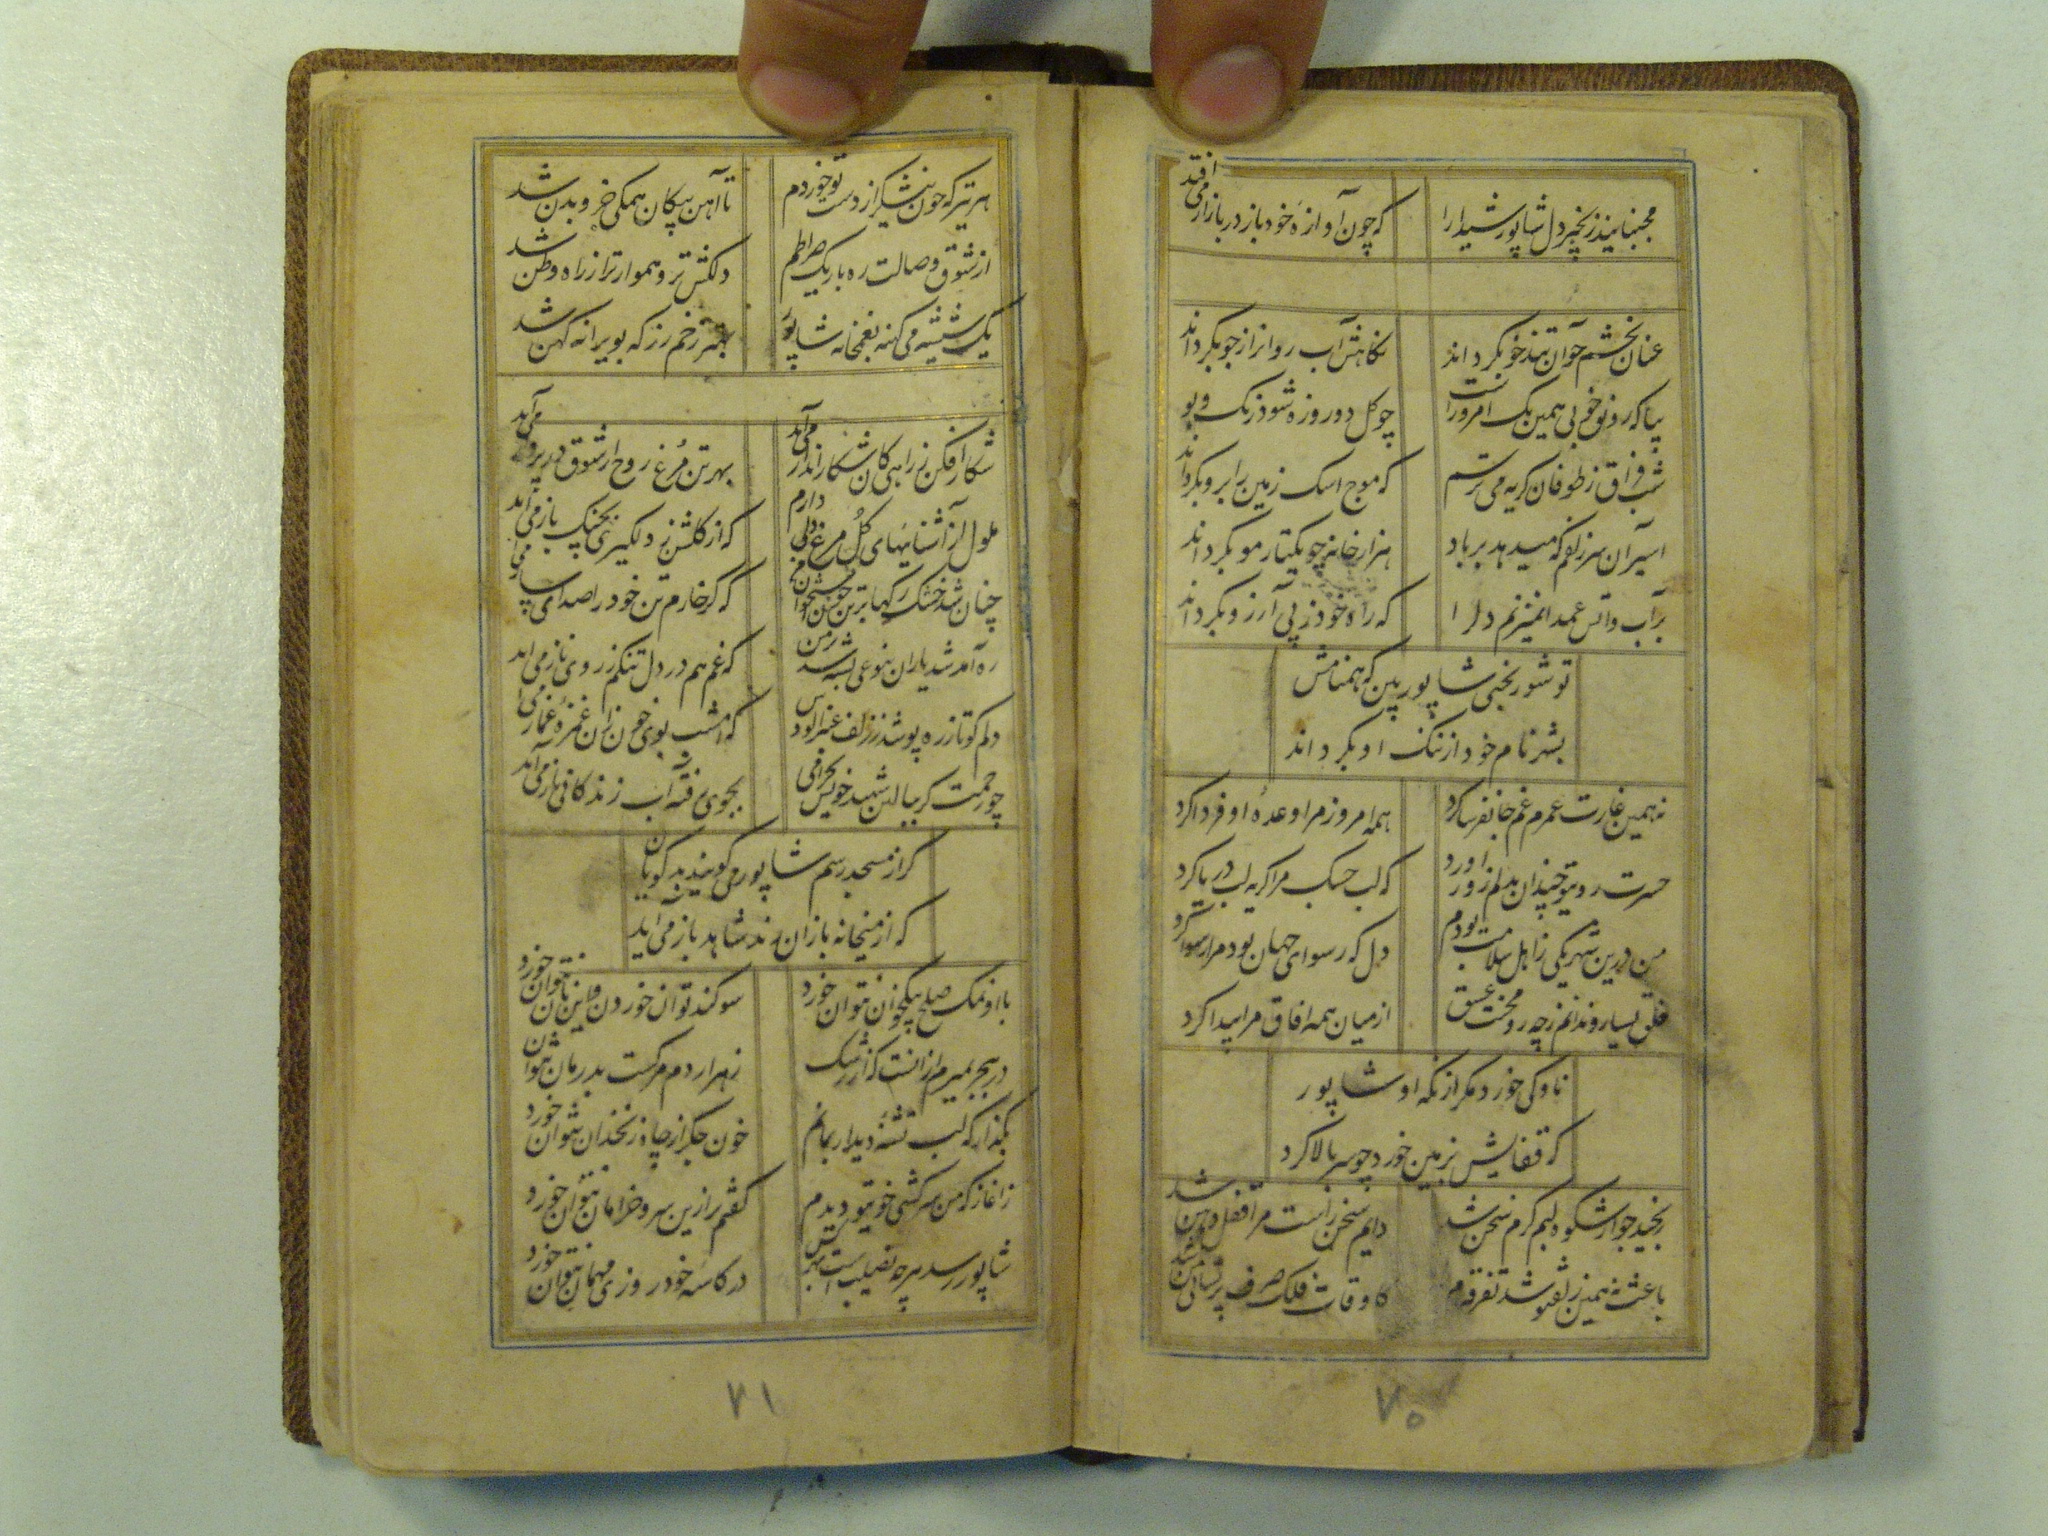 مجنبانید زنجیر دل شاپور شیدا را
که چون آوازه خود باز در بازار می افتد
عنان بخشم چو آن تند خو بگرداند
نگاهش آب روان را ز جو بگرداند
بیا که رونق خوبی همین یک امروز است
چو گل دو روزه شود رنگ و بو
شب فراق ز طوفان گریه می ترسم
که موج اشک زمین را برو بگرداند
اسیر آن سر زلفم که میدهد برباد
هزار خانه چو یکتار مو بگرداند
بر آب و آتش عمدا نمیزنم دل را
که راه خود ز پی آرزو بگرداند
تو شور بختی شاپور بین که همنامش
بشهر نام خود از ننگ او بگرداند
نه همین غارت عمرم غم جانفرسا کرد
همه امروز مرا وعده او فردا کرد
حسرت رو بتو چندان بدلم زور آورد
که لب خشک مرا گریه لب دریا کرد
من درین شهر یکی ز اهل سلامت بودم
دل که رسوای جهان بود مرا رسوا کرد
خلق بسیار و ندانم ز چه رو محنت عشق
از میان همه آفاق مرا پیدا کرد
ناوکی خورد مگر از نگه او شاپور
که قفایش بزمین خورد چو سر بالا کرد
رنجید چو از شکوه لبم گرم سخن شد
دایم سخن راست مرا قفل دهن شد
باعث نه همین زلف تو شد تفرقه ام
کاوقات فلک صرف پریشانی من شد
۷۰
هر تیر که چون نیشکر از دست تو خوردم
تا آهن پیکان همگی جزو بدن شد
از شوق وصالت ره باریک صراطم
دلکش تر و هموارتر از راه وطن شد
یک شیشه می کهنه بغمخانه شاپور
بهتر ز خم زر که بویرانه کهن شد
شکار افکن ز راهی کان شکار انداز می آید
بهر تن مرغ روح از شوق در پرواز می آید
ملول از آشناییهای گل مرغ دلی دارم
که از گلشن ز دلگیری بچنگ باز می آید
چنان شد خشک رگها بر تن
که گر خارم تن خود را صدای ساز می آید
ره آمد شد یاران بنوعی بسته شد بر من
که غم هم در دل تنگم ز روی ناز می آید
دلم کو تا زره پوشد ز زلف عنبر آلودش
که امشب بوی خون زان غمزه غماز می آید
چو رحمت گر ببالین شهید خویش بخرامی
بجوی رفته آب زندگانی باز می آید
گر از مسجد رسم شاپور می گویند بدگویان
که از میخانه باز آن رند شاهد باز می آید
با او نمک صلح بیکخوان نتوان خورد
سوگند توان خوردن و این نان نتوان خورد
در هجر بمیرم به از آنست که از رشک
زهرار دم مرگست بدرمان نتوان خورد
بگذار که لب تشنه دیدار بمانم
خون جگر از چاه زنخدان نتوان خورد
ز آغاز که من سرکشی خوی تو دیدم
گفتم بر ازین سرو خرامان نتوان خورد
شاپور رسد هر چه نصیب است
در کاسه خود روزی مهمان نتوان خورد
۷۱